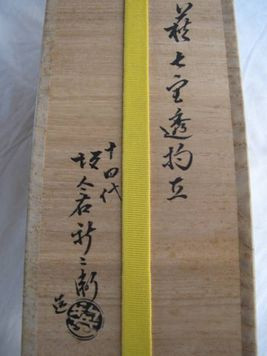 萩七宝透杓立
十四代
坂倉新兵衛
造